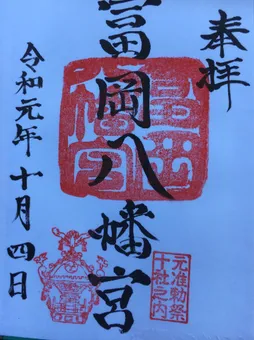 奉拝
富岡八幡宮
令和元年十月四日
富岡
八幡宮
元准勅祭
十社之内